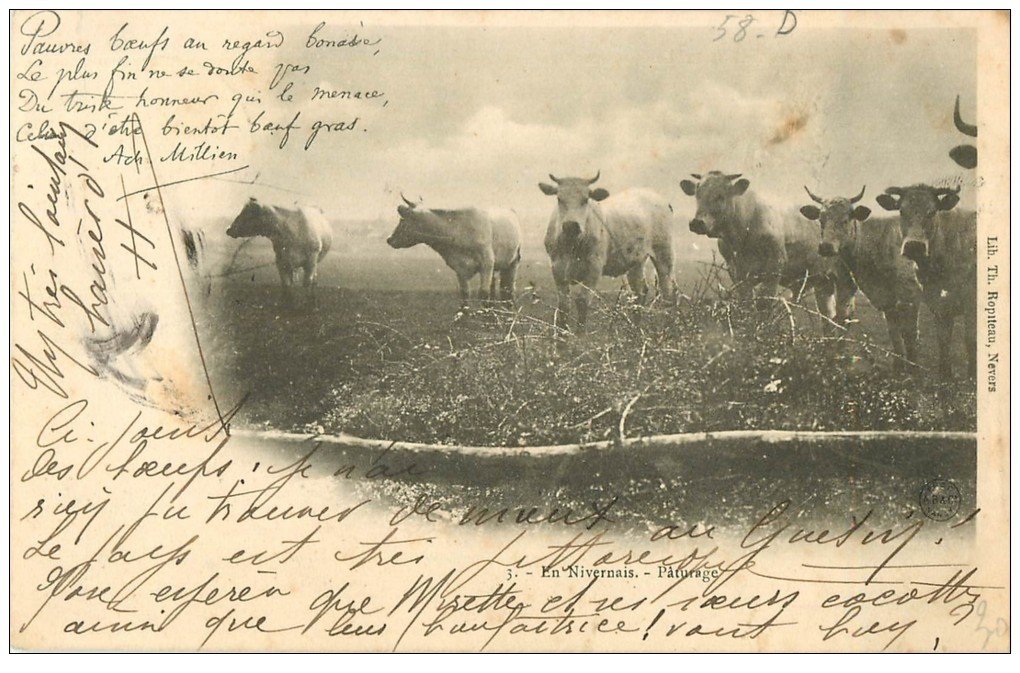 58. D
Pauvres bœufs au regard bonasse,
Le plus fin ne se doute pas
Du triste honneur qui le menace,
Celui d'être bientôt bœuf gras.
Ach. Millien
Lib. Th. Ropiteau, Nevers
Ci-joint
des bœufs, je n'ai
rien pu trouver de mieux au
Le pays est très pittoresque
3. - En Nivernais. - Pâturage
que Mirette et ses sœurs cocottes
ainsi que leur bienfaitrice! vont bien,
20